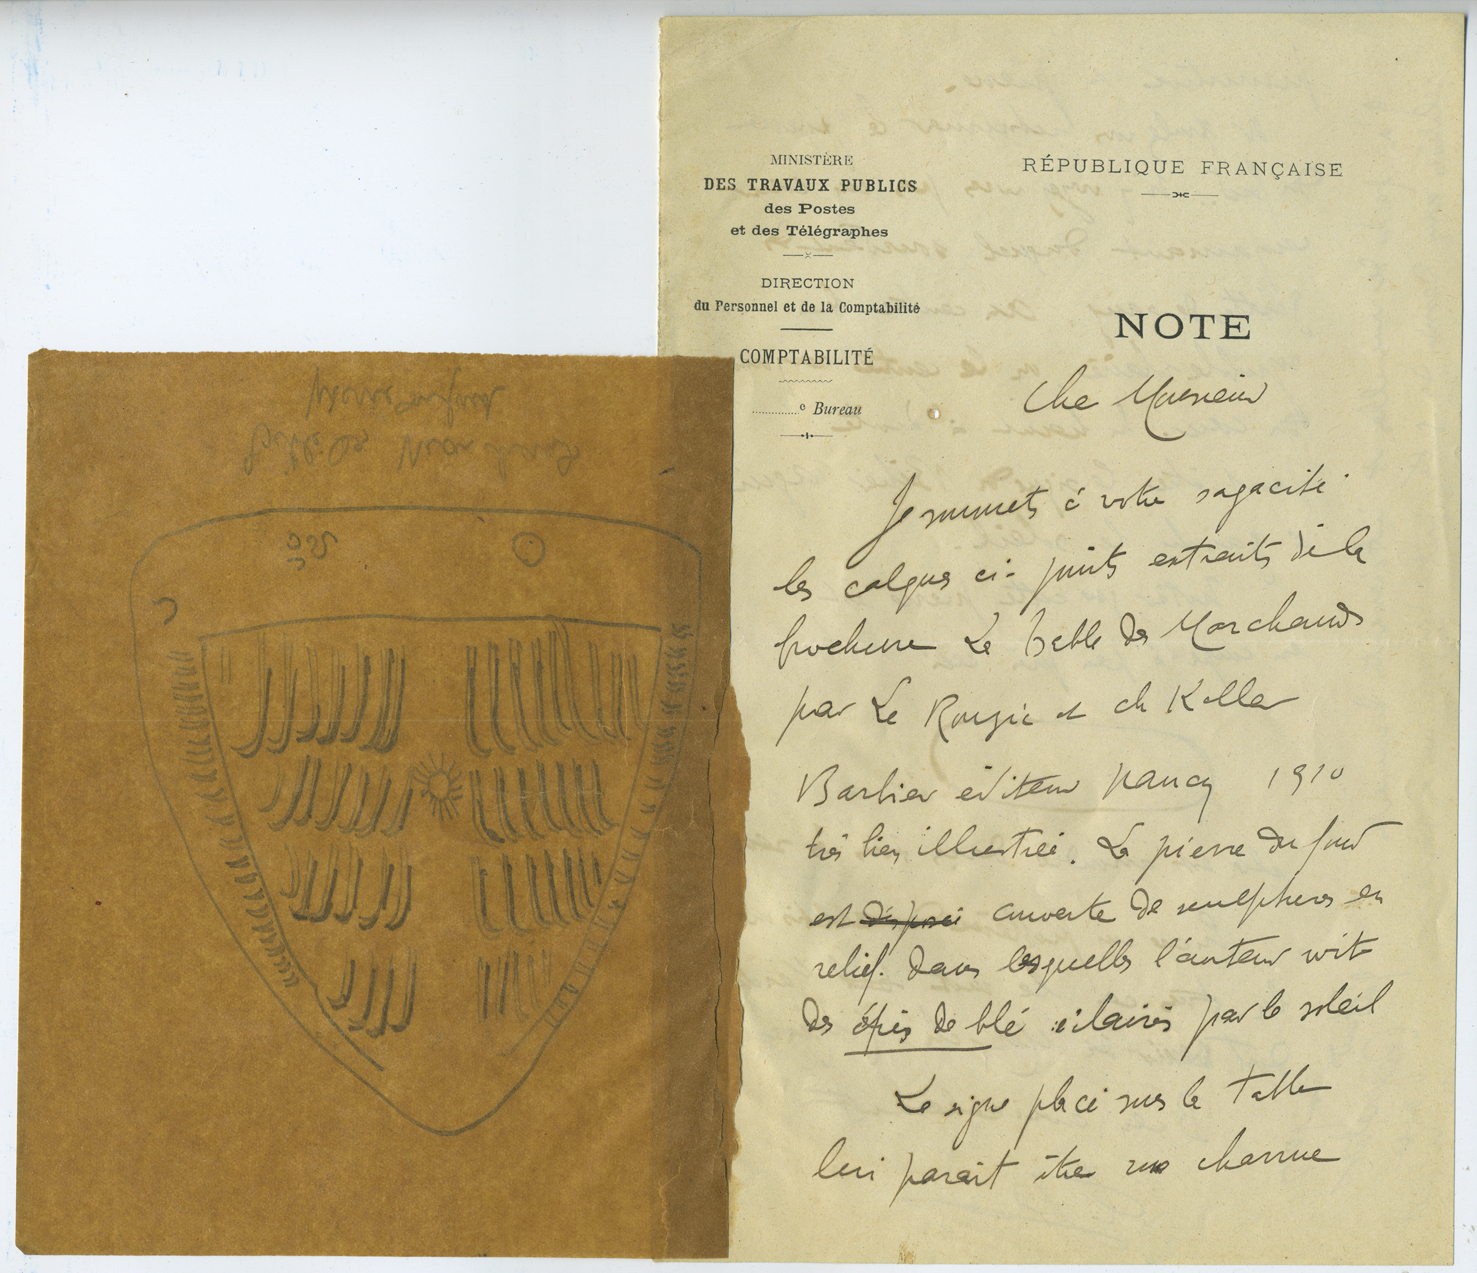 pierre du fond
table des Marchands
MINISTÈRE
DES TRAVAUX PUBLICS
des Postes
et des Télégraphes
DIRECTION
du Personnel et de la Comptabilité
COMPTABILITÉ
e Bureau
RÉPUBLIQUE FRANÇAISE
NOTE
Cher Monsieur
Je soumets à votre sagacité
les calques ci-joints extraits de la
brochure La table des Marchands
par Le Rouzic et ch Keller
Barbier éditeur Nancy 1910
très bien illustrée. La pierre du fond
est disposée couverte de sculptures en
relief. dans lesquelles l'auteur voit
des épis de blé éclairés par le soleil
Le signe placé sous la table
lui parait être une charrue